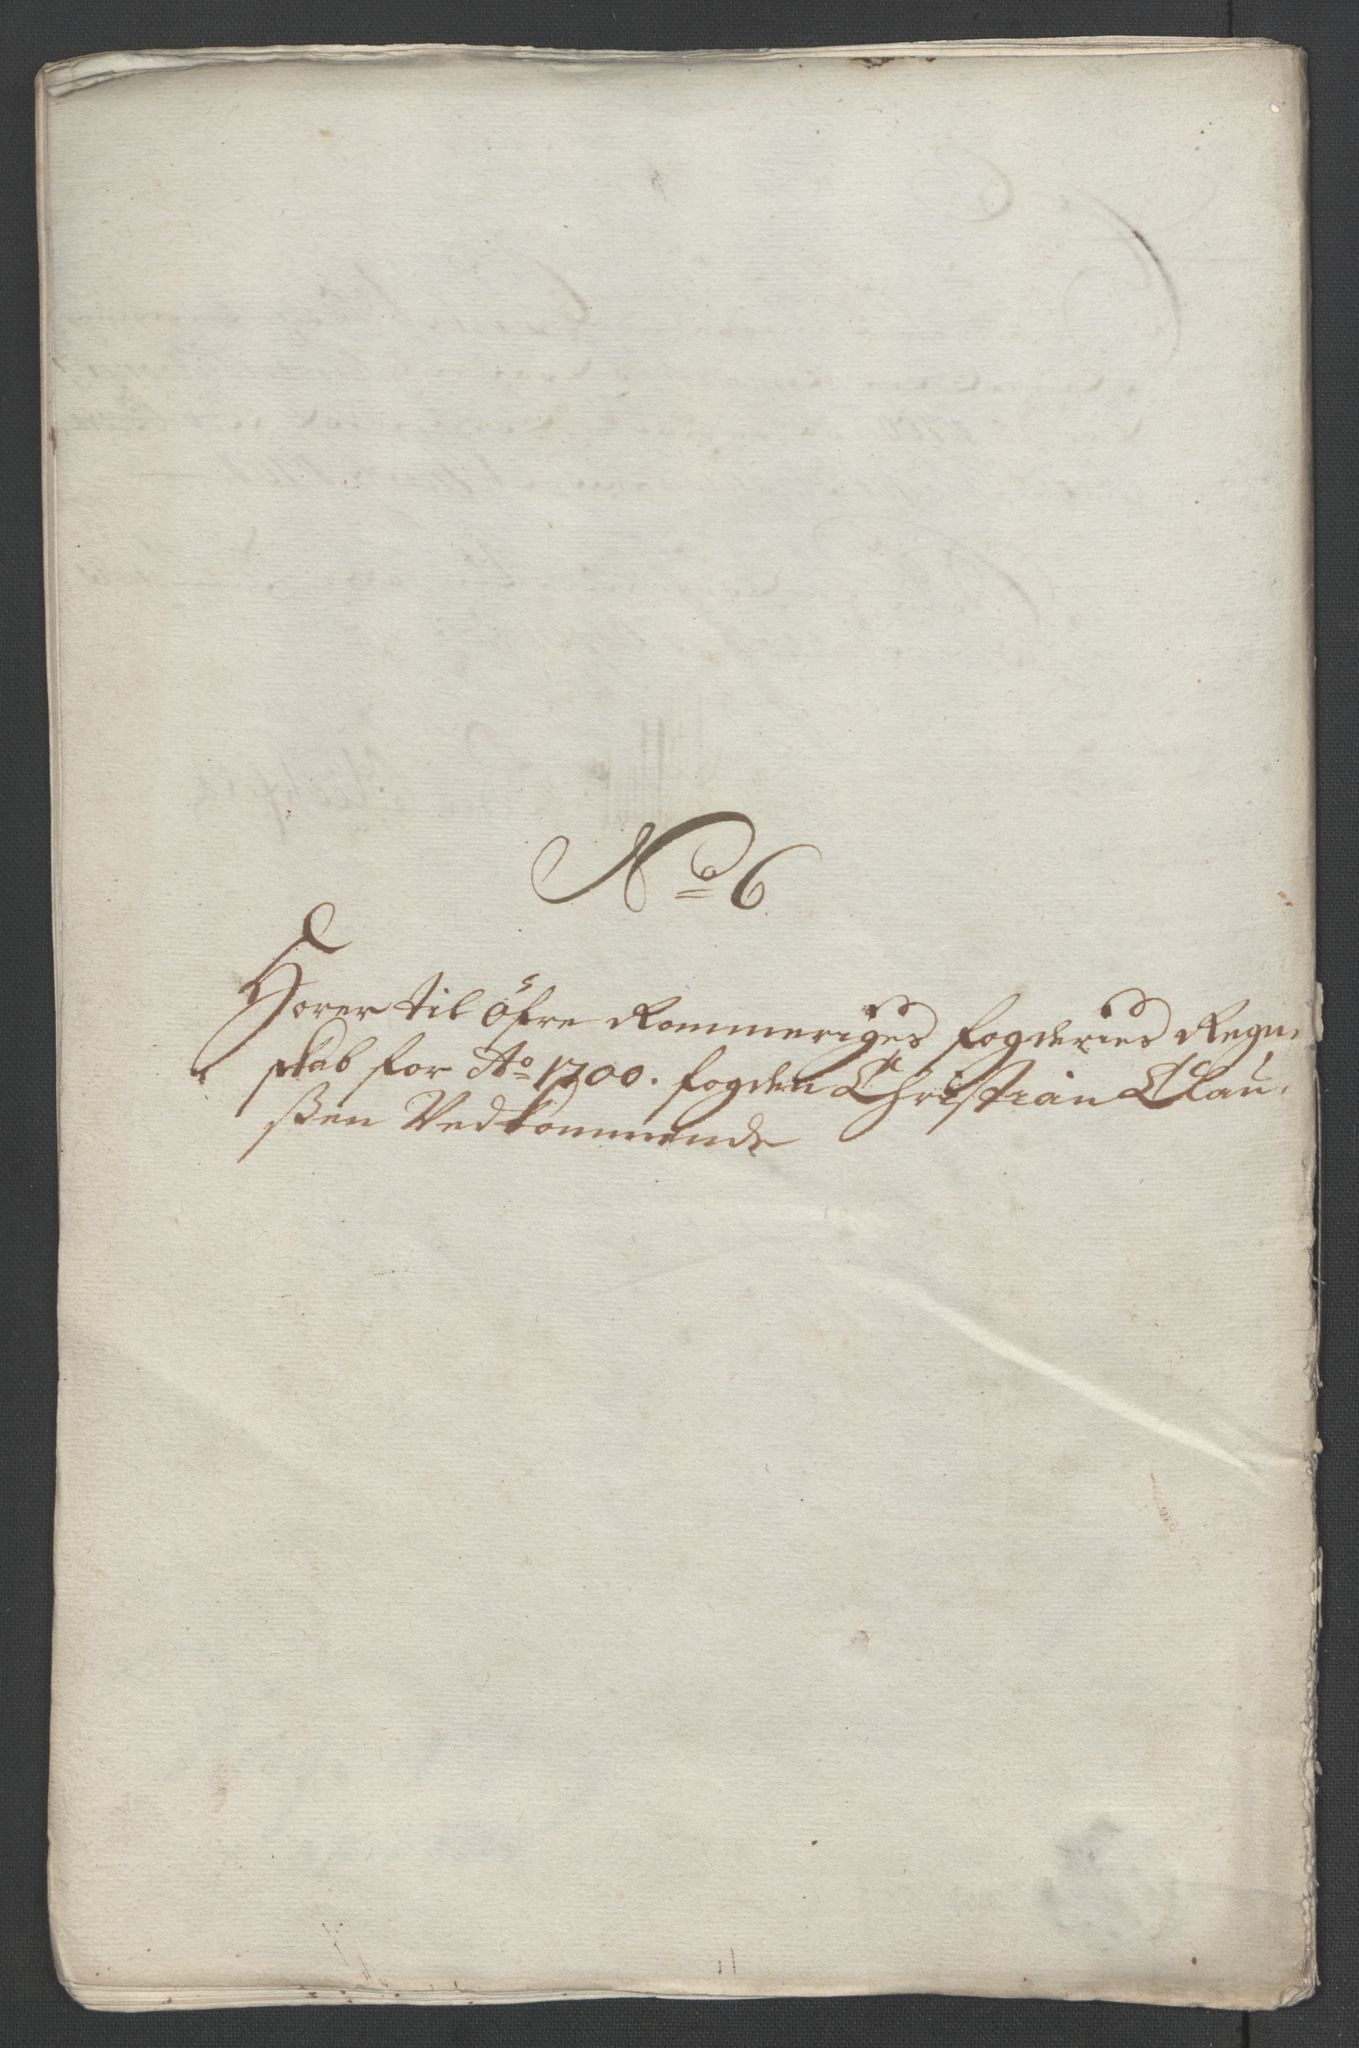 No 6
Hörer til öfre Rommeriges fogderies Regn-
skab for Ao 1700. fogden Christian Clau-
ßen Vedkommende